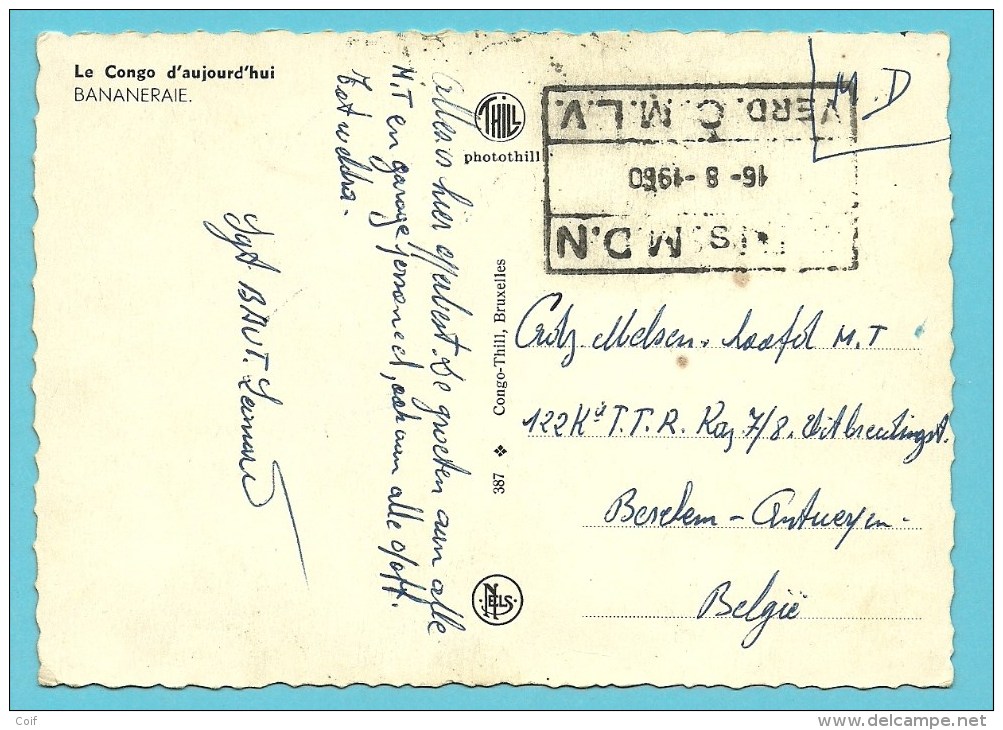 Le Congo d'aujourd'hui
BANANERAIE.
THILL
photothill
M.D
VERD. C.M.L.V.
16-8-1960
M.D.N
Alles is hier opperbest. De groeten aan alle
M.T en garage personeel, ook aan alle o/off.
Tot weldra.
Sgt BAUT.
387 ❖ Congo-Thill, Bruxelles
NELS
M.T
122 T.T.R. Kaz 7/8. Uitbreidingst.
Berchem - Antwerpen.
België
Coif
www.delcampe.net